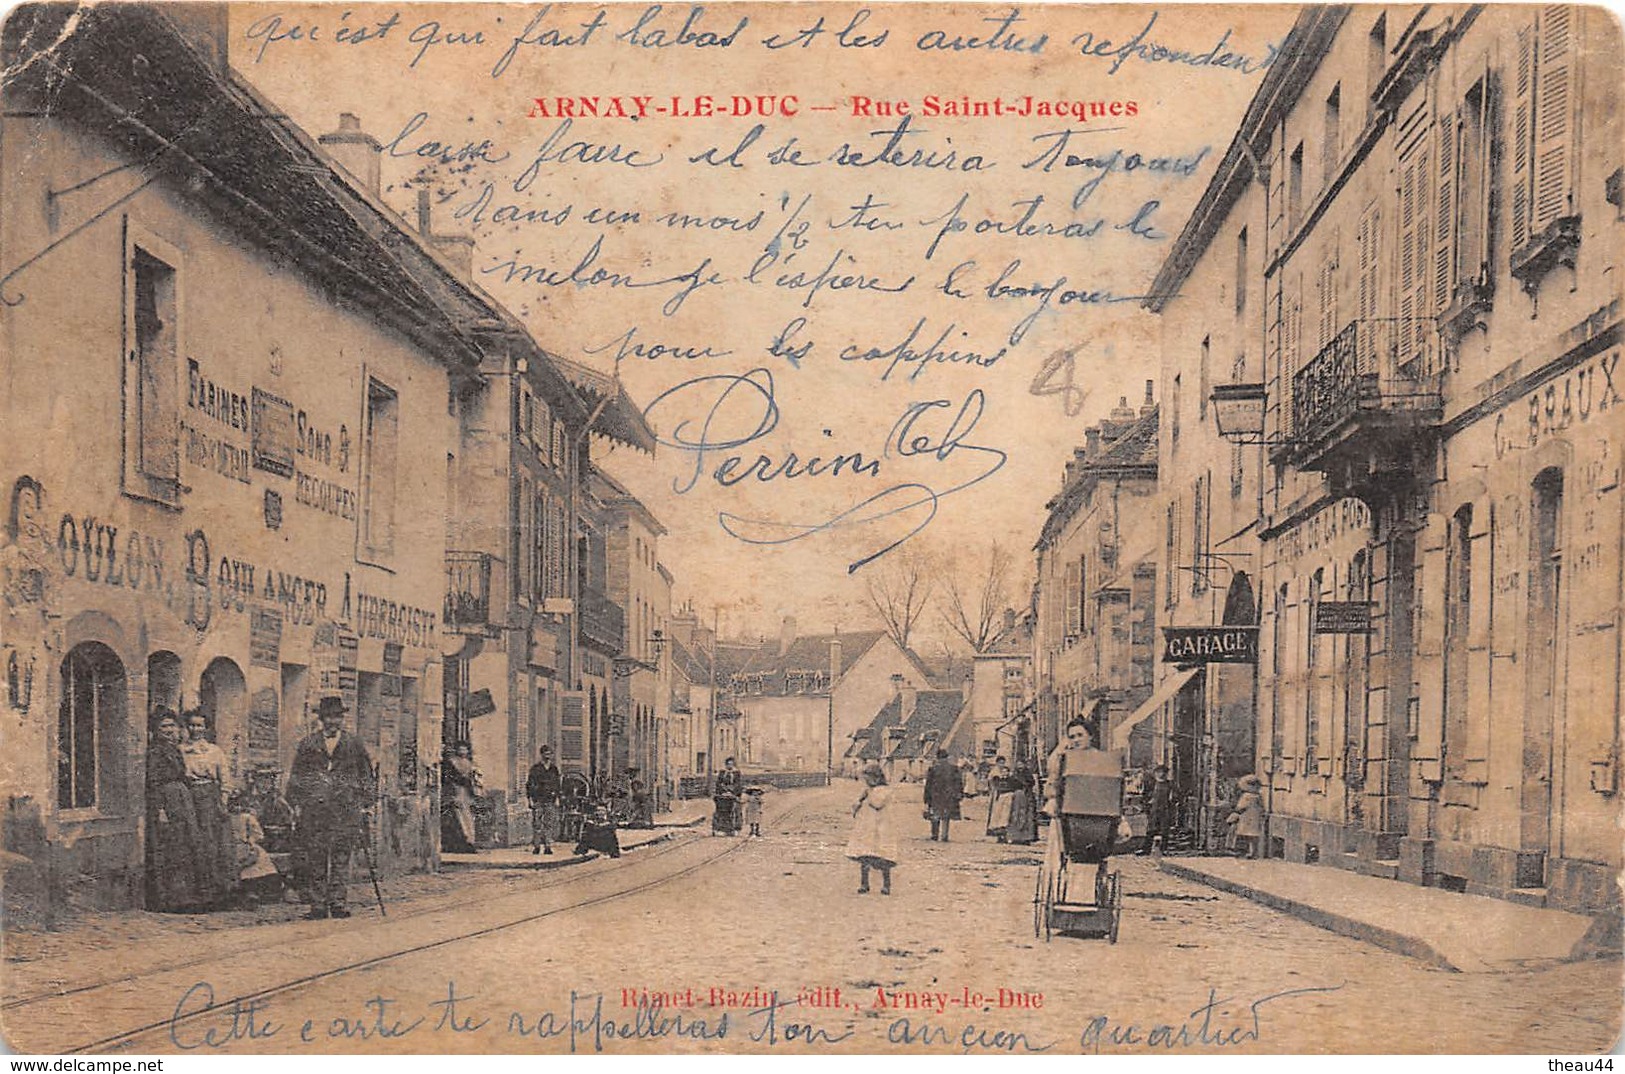 qu'est qui fait labas et les autres repondent
ARNAY-LE-DUC — Rue Saint-Jacques
laisse faire il se reterira Toujours
dans un mois 1/2 tu porteras le
melon je l'espère le bonjour
pour les coppins
8
Perrin
FARINES SONS &
GROS & DETAIL RECOUPES
COULON, BOULANGER AUBERGISTE
C. BRAUX
HOTEL DE LA POSTE
GARAGE
Rimet-Bazin, édit., Arnay-le-Duc
Cette carte te rappelleras ton ancien quartier
theau44